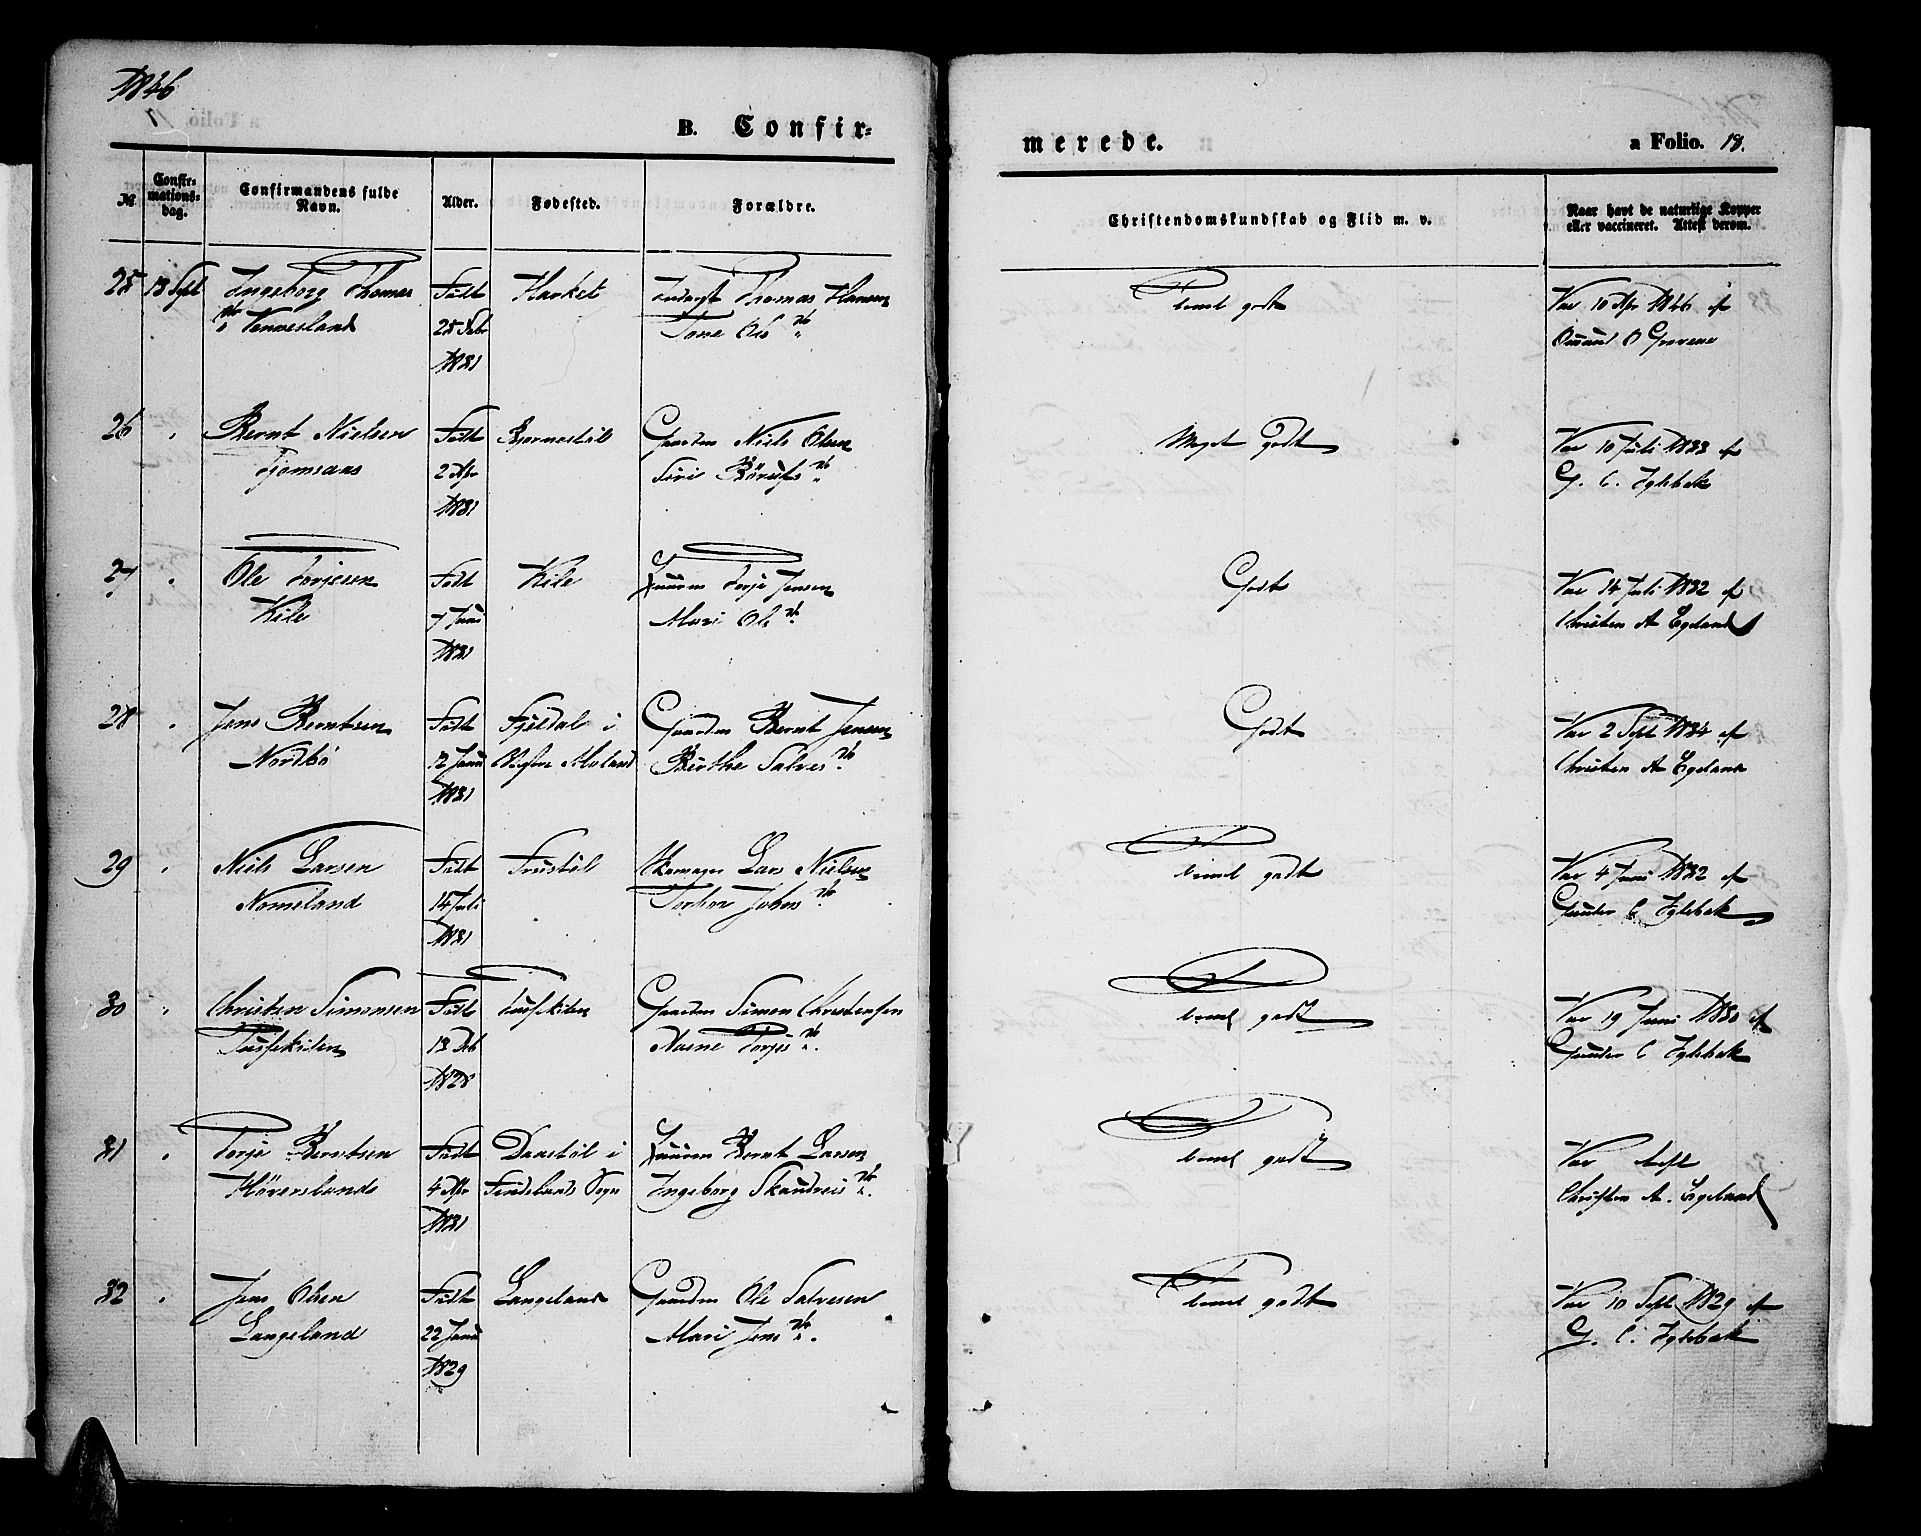 1846
B. Confir=
merede.
a Folio. 18.
№
Confir=
mations=
dag.
Confirmandens fulde
Navn.
Alder.
Fødested.
Forældre.
Christendomskundskab og Flid m. v.
Naar havt de naturlige Kopper
eller vaccineret. Attest derom.
25
13 Sept
Ingeborg Thomas
dtr Vennesland
Født
25 Febr
1831
Harket
Thomas Hansen
Tone Ols dtr
Temmel godt
Vac 10 Apr 1846 af
26
Bernt Nielsen
Tjomsaas
Født
2 Apr
1831
Bjørnestøl
Gaardm Niels Olsen
Siri
Meget godt
Vac 10 Juli 1833 af
G. C. Iglebæk
27
Ole Torjesen
Kile
Født
7 Juni
1831
Kile
Huusm Torje Jensen
Mari Ols dtr
Godt
Vac 14 Juli 1832 af
Christen A Egeland
28
Jens Berntsen
Nordbö
Født
12 Janu
1831
Fjeldal i
Moland
Gaardm Bernt Jensen
Birthe Salves dtr
Godt
Vac 2 Sept 1834 af
Christen A Egeland
29
Niels Larsen
Nomeland
Født
14 Juli
1831
Frustöl
Skomager Lars Nielsen
Torbor Johns dtr
Temmel godt
Vac 4 Juni 1832 af
Gunder C Iglebæk
30
Christen Simonsen
Tufsekilen
Født
13 Feb
1828
Tufsekilen
Gaardm Simon Christensen
Aasne Torjes dtr
Temmel godt
Vac 19 Juni 1830 af
Gunder C Iglebæk
31
Torje Berntsen
Höversland
Født
4 Apr
1831
Daastöl i
Findslands Sogn
Huusm Bernt Larsen
Ingeborg dtr
Temmel godt
Vac
Christen A. Egeland
32
Jens Olsen
Langeland
Født
22 Janu
1829
Langeland
Gaardm Ole Salvesen
Mari Jens dtr
Temmel godt
Vac 10 Sept 1829 af
G. C. Iglebæk